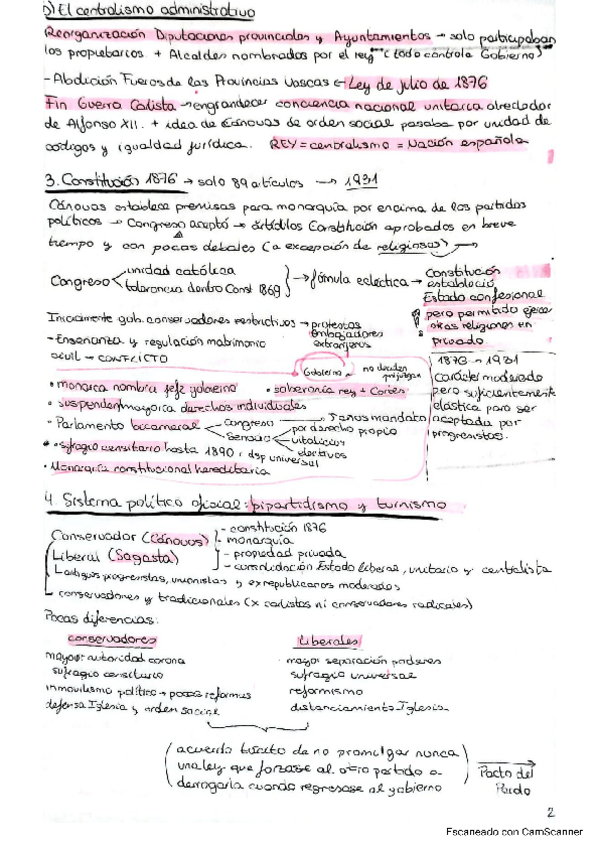 b) El centralismo administrativo
Reorganización Diputaciones provinciales y Ayuntamientos → solo participaban
los propietarios + Alcaldes nombrados por el rey (todo controla Gobierno)
- Abolición Fueros de las Provincias Vascas ← Ley de julio de 1876
Fin Guerra Carlista → engrandecer conciencia nacional unitaria alrededor
de Alfonso XII. + idea de Cánovas de orden social pasaba por unidad de
códigos y igualdad jurídica. REY = centralismo = Nación española
3. Constitución 1876 → solo 89 artículos → 1931
Cánovas establece premisas para monarquía por encima de los partidos
políticos → Congreso aceptó → artículos Constitución aprobados en breve
tiempo y con pocos debates (a excepción de religiosas)
Congreso
unidad católica
tolerancia dentro Const 1869
→ fórmula ecléctica →
Constitución
estableció
Estado confesional
pero permitido ejercer
otras religiones en
privado
Inicialmente gob. conservadores restrictivos → protestas
embajadores
extranjeros
- Enseñanza y regulación matrimonio
civil → CONFLICTO
Gobierno
no deciden
1876 → 1931
carácter moderado
pero suficientemente
elástica para ser
aceptada por
progresistas.
• monarca nombra jefe gobierno • soberanía rey + Cortes
• suspenden mayoría derechos individuales
- Parlamento bicameral
Congreso
Senado
5 años mandato
por derecho propio
vitalicios
electivos
• sufragio censitario hasta 1890, dsp universal
• Monarquía constitucional hereditaria
4. Sistema político oficial: bipartidismo y turnismo
Conservador (Cánovas)
Liberal (Sagasta)
- constitución 1876
- monarquía
- propiedad privada
- consolidación Estado liberal, unitario y centralista
antiguos progresistas, unionistas y exrepublicanos moderados
conservadores y tradicionales (x carlistas ni conservadores radicales)
Pocas diferencias:
conservadores
mayor autoridad corona
sufragio censitario
inmovilismo político → pocas reformas
defensa Iglesia y orden social
liberales
mayor separación poderes
sufragio universal
reformismo
distanciamiento Iglesia
(acuerdo tácito de no promulgar nunca
una ley que forzase al otro partido a
derogarla cuando regresase al gobierno)
→ Pacto del
Pardo
2
Escaneado con CamScanner